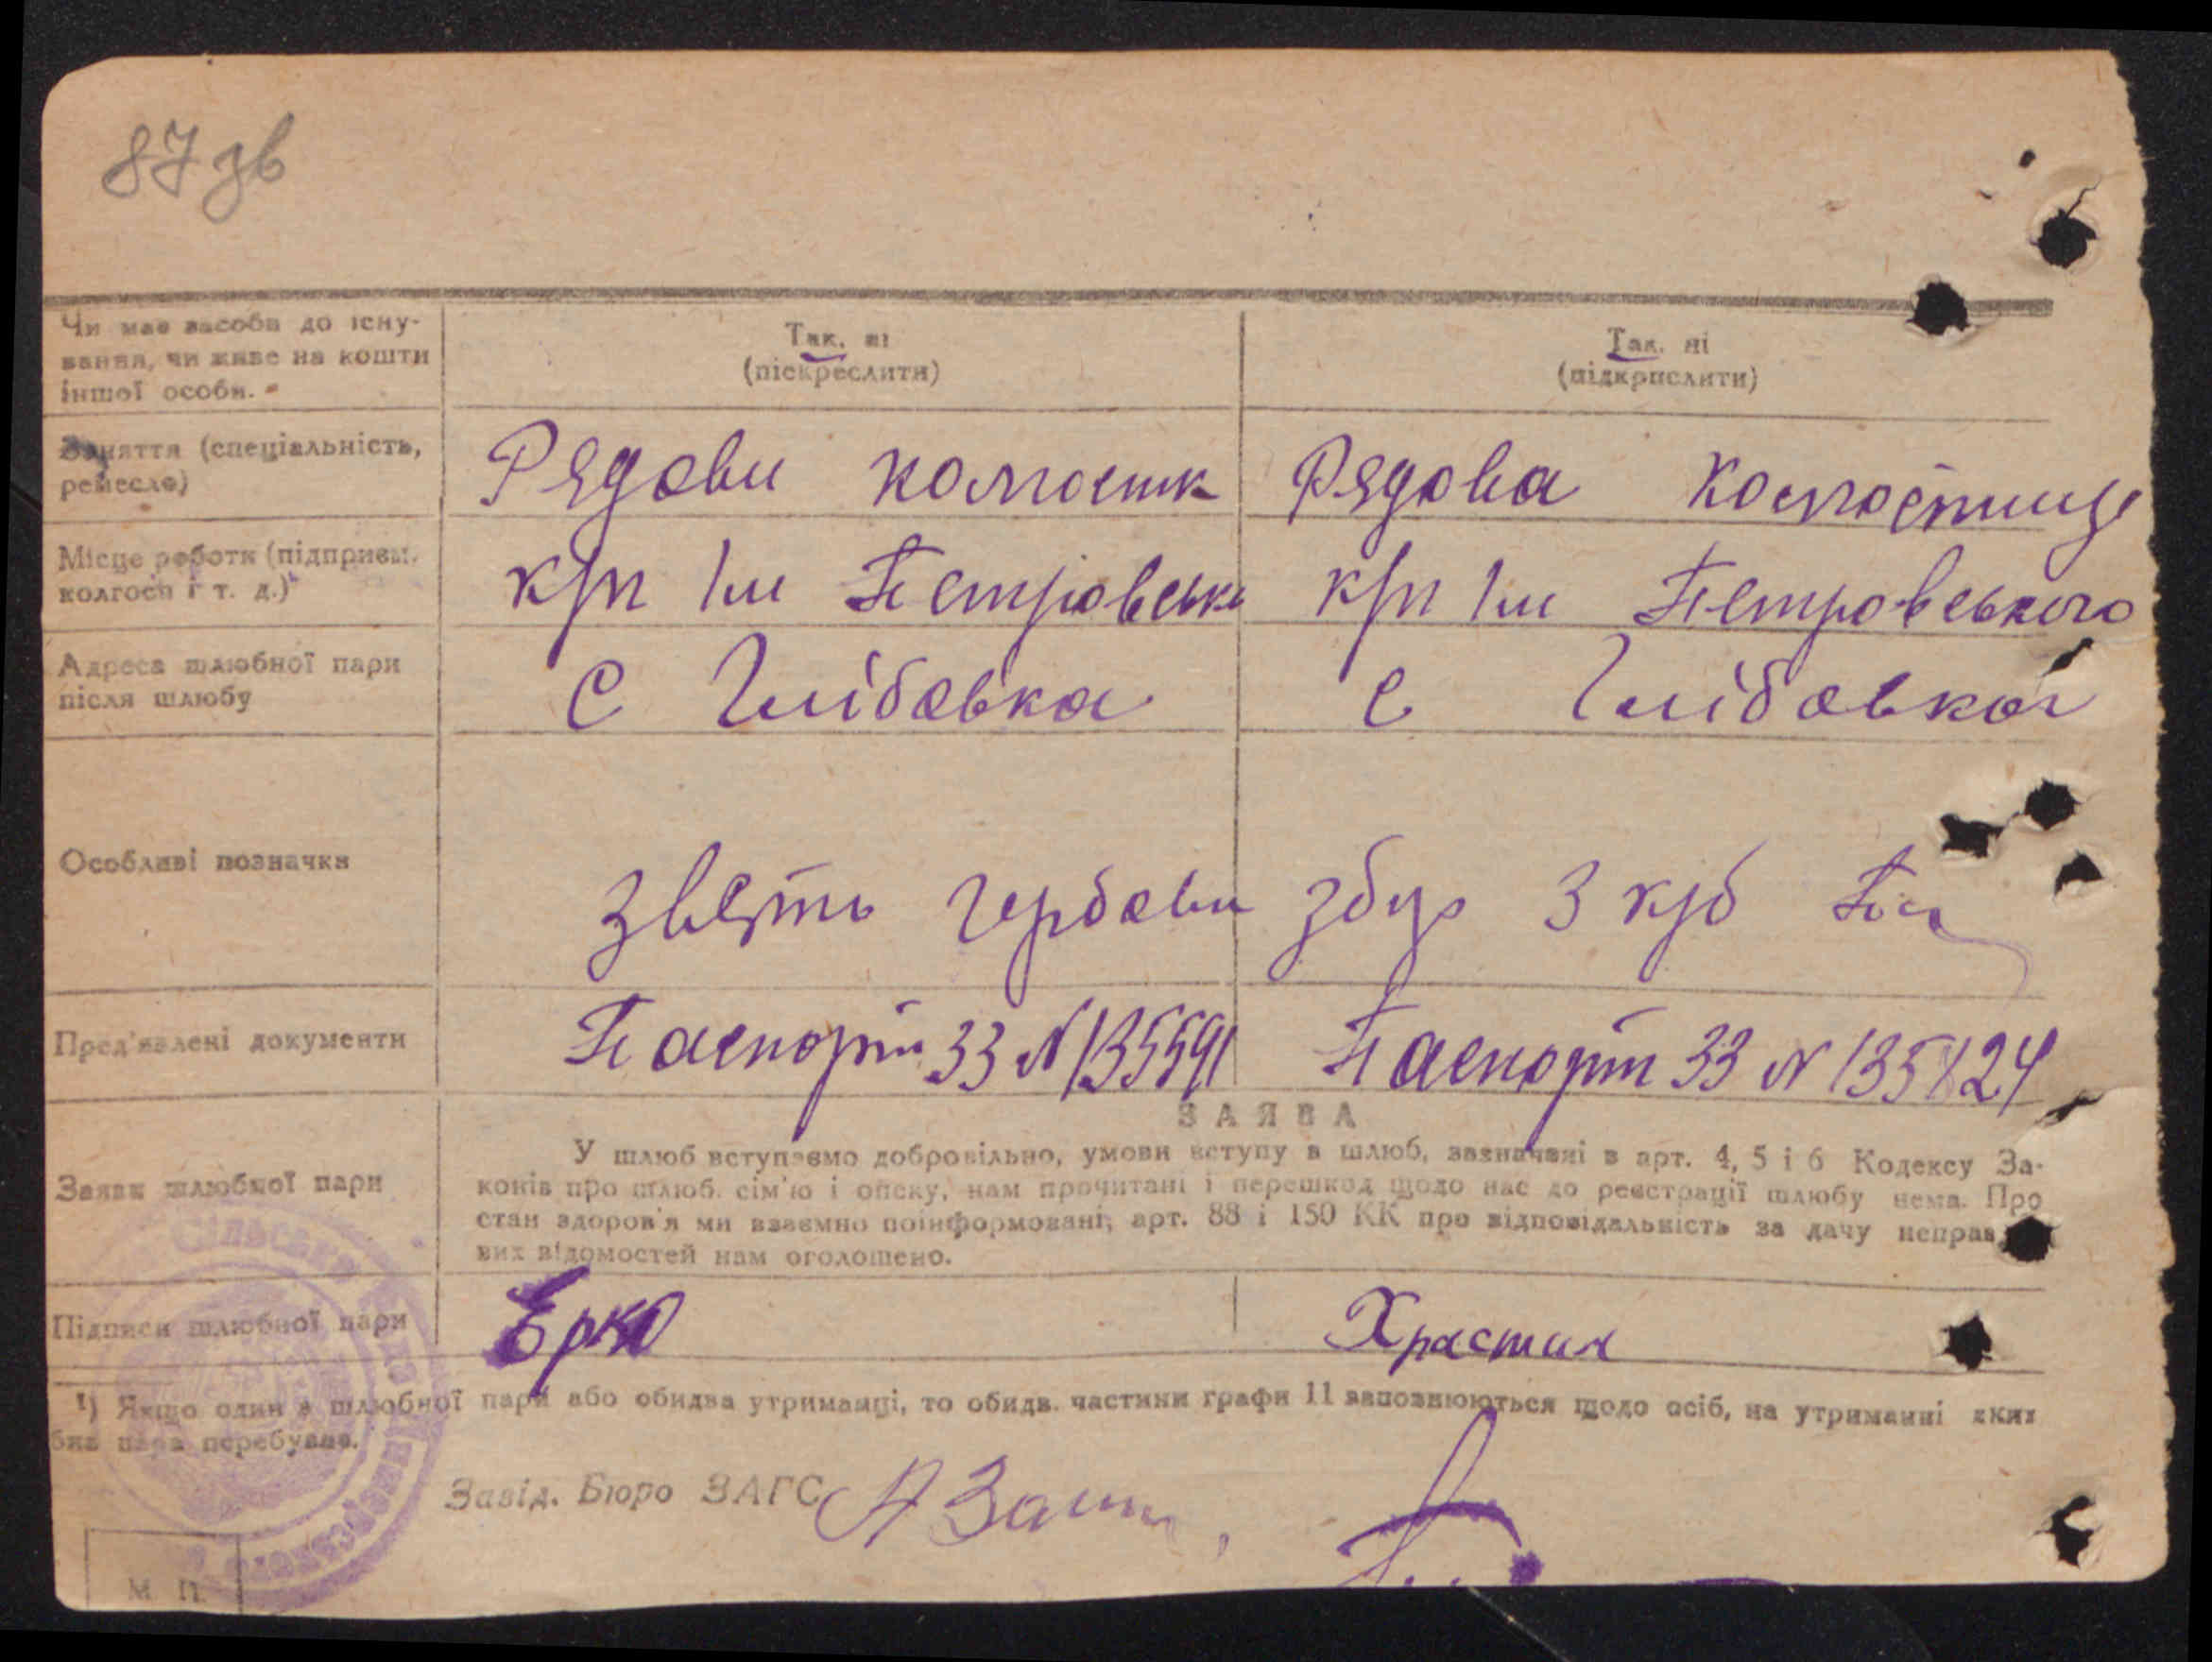 87 зв
Чи має засоби до існу-
вання, чи живе на кошти
іншої особи.
Так, ні
(піскреслити)
Так, ні
(підкрпслити)
Заняття (спеціальність,
ремесло)
Рядови колгоспник
Рядова колгоспниця
Місце роботи (підприєм.
колгосп і т. д.)
к/п Ім Петровсько
к/п Ім Петровського
Адреса шлюбної пари
після шлюбу
С Глібовка
с Глібовка
Особливі позначки
Звято гербови збур 3 крб
Пред'явлені документи
Паспорт 33 № 135591
Паспорт 33 № 135124
Заява шлюбної пари
ЗАЯВА
У шлюб вступаємо добровільно, умови вступу в шлюб, зазначені в арт. 4, 5 і 6 Кодексу За-
конів про шлюб. сім'ю і опеку, нам прочитані і перешкод щодо нас до реєстрації шлюбу нема. Про
стан здоров'я ми взаємно поінформовані, арт. 88 і 150 КК про відповідальність за дачу неправ
вих відомостей нам оголошено.
Підписи шлюбної пари
Ерко
Храстин
¹) Якщо один з шлюбної пари або обидва утриманці, то обидв. частини графи 11 заповнюються щодо осіб, на утриманні яких
бна пара перебуває.
Завід. Бюро ЗАГС
М. П.
Сільська Рада